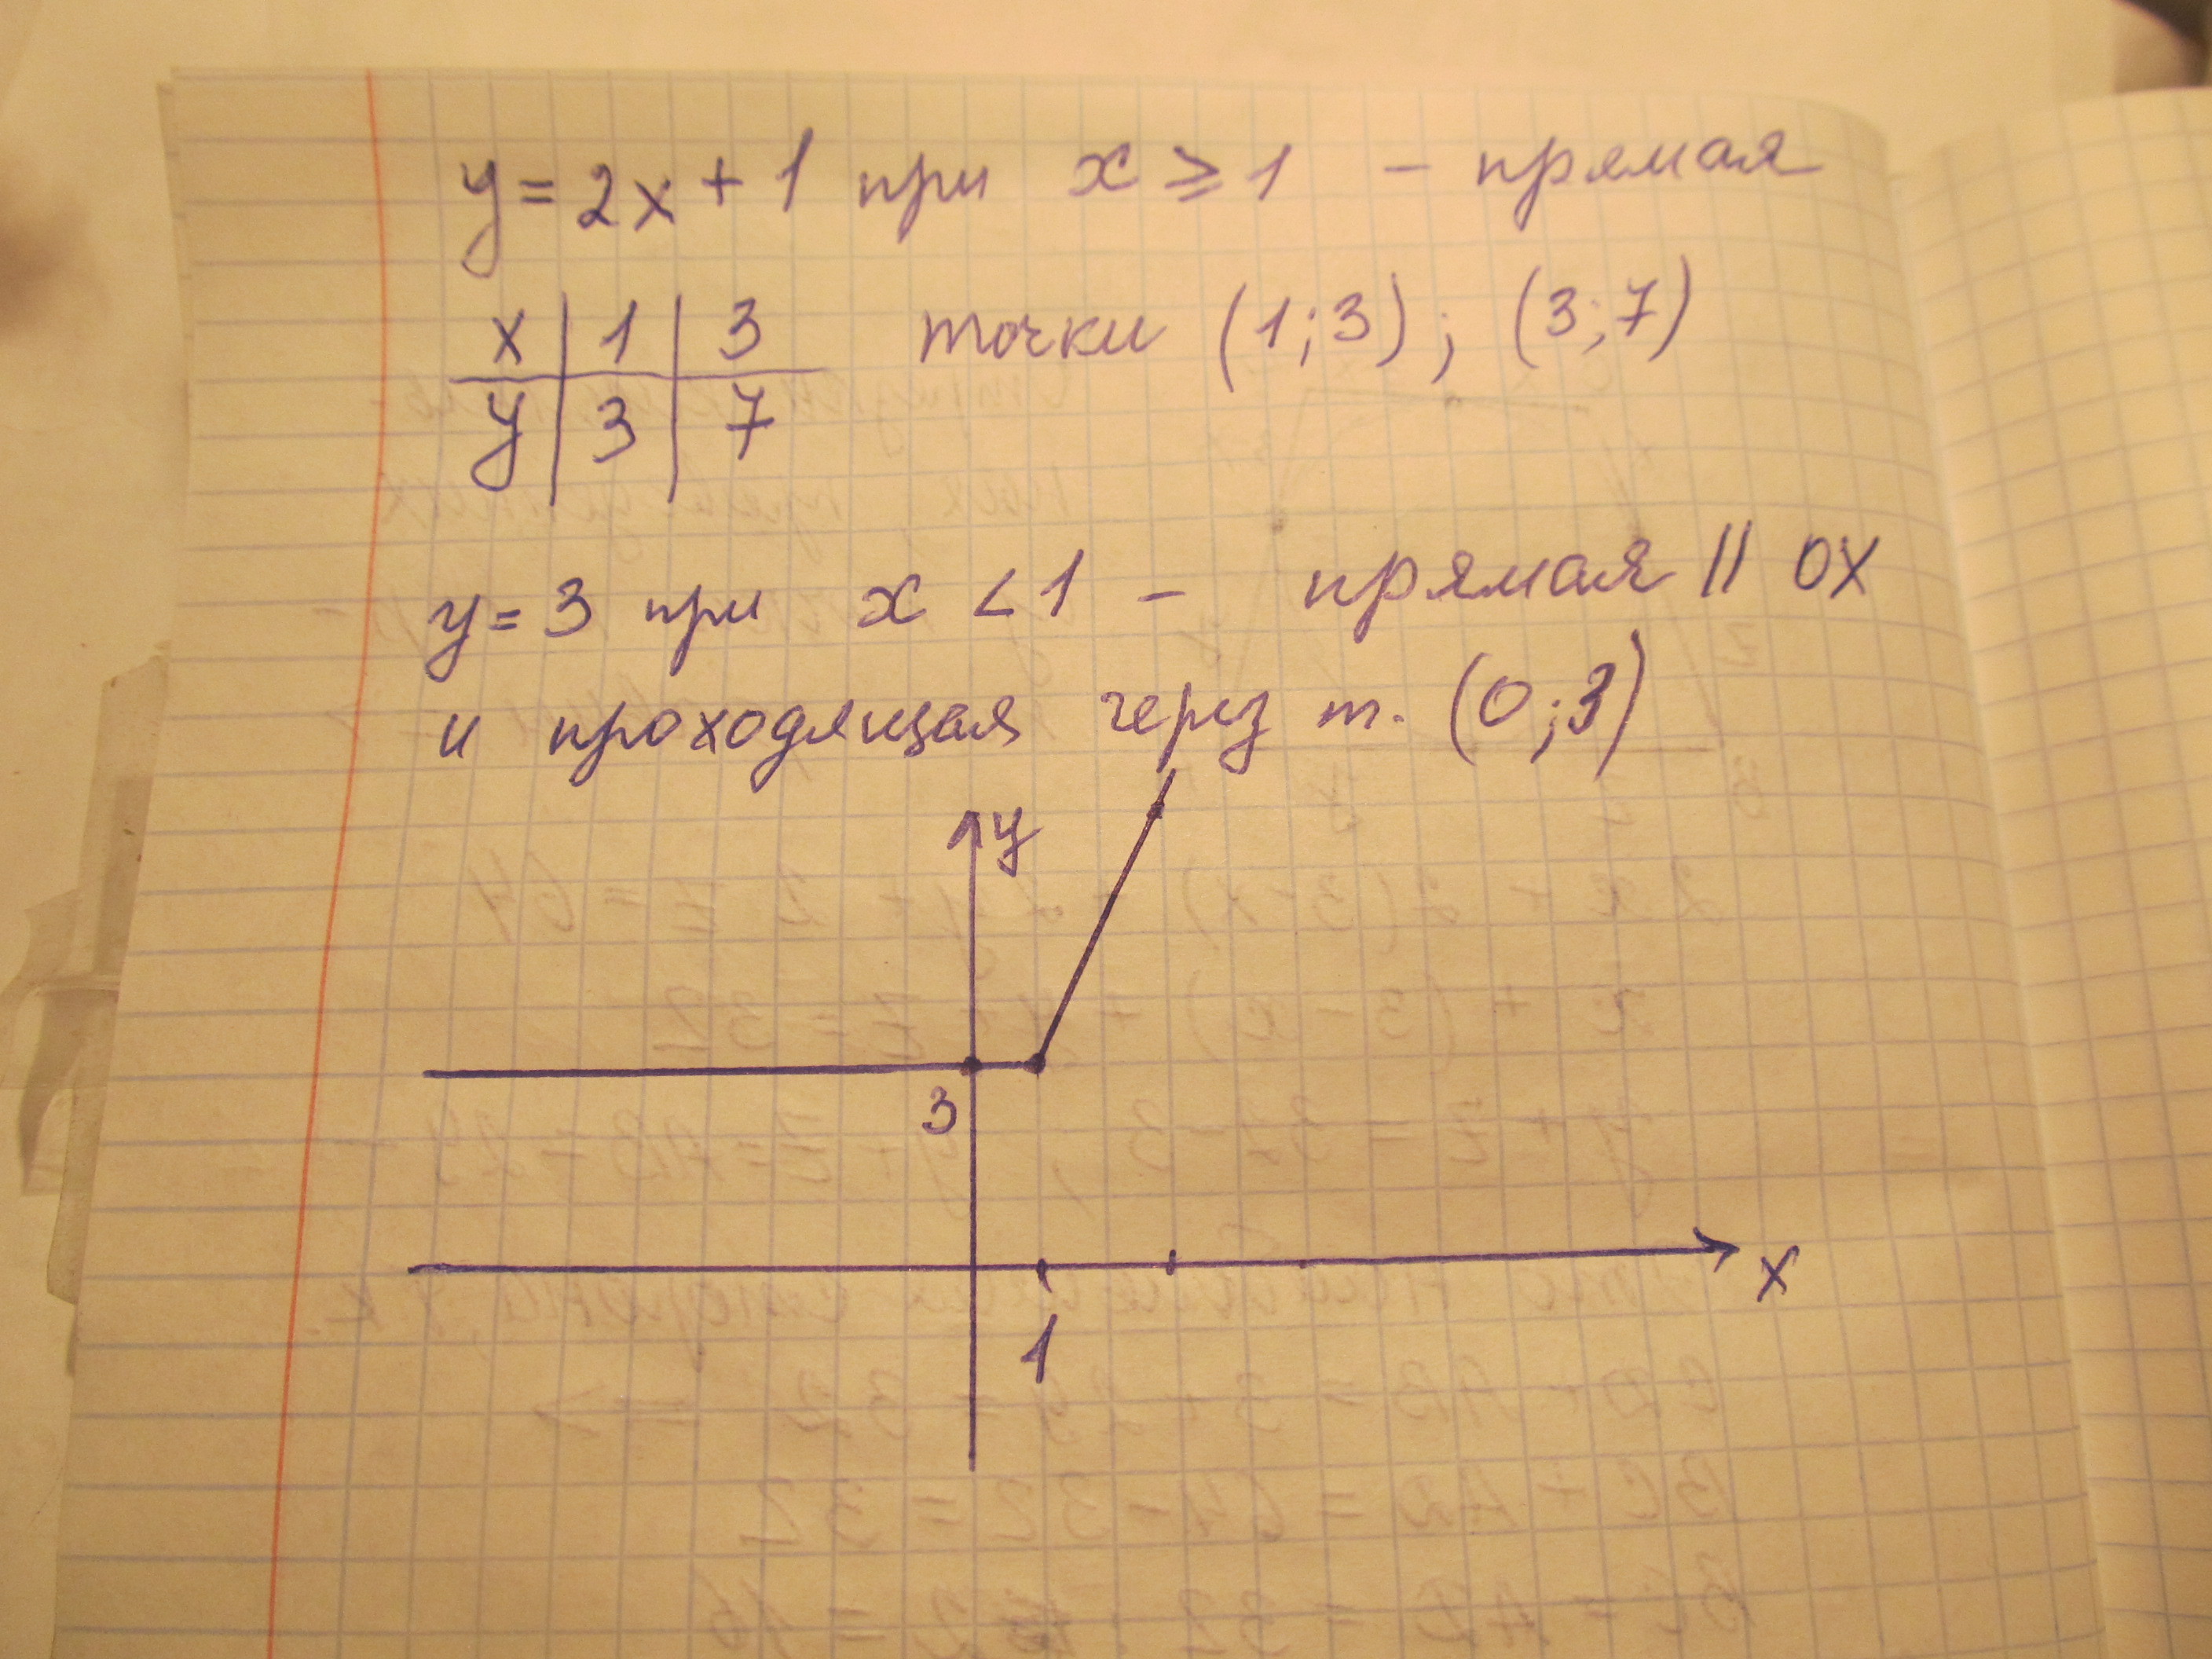 y = 2x + 1 при x ⩾ 1 - прямая
x | 1 | 3 точки (1;3); (3;7)
y | 3 | 7
y = 3 при x < 1 - прямая || OX
и проходящая через т. (0;3)
y
3
x
1